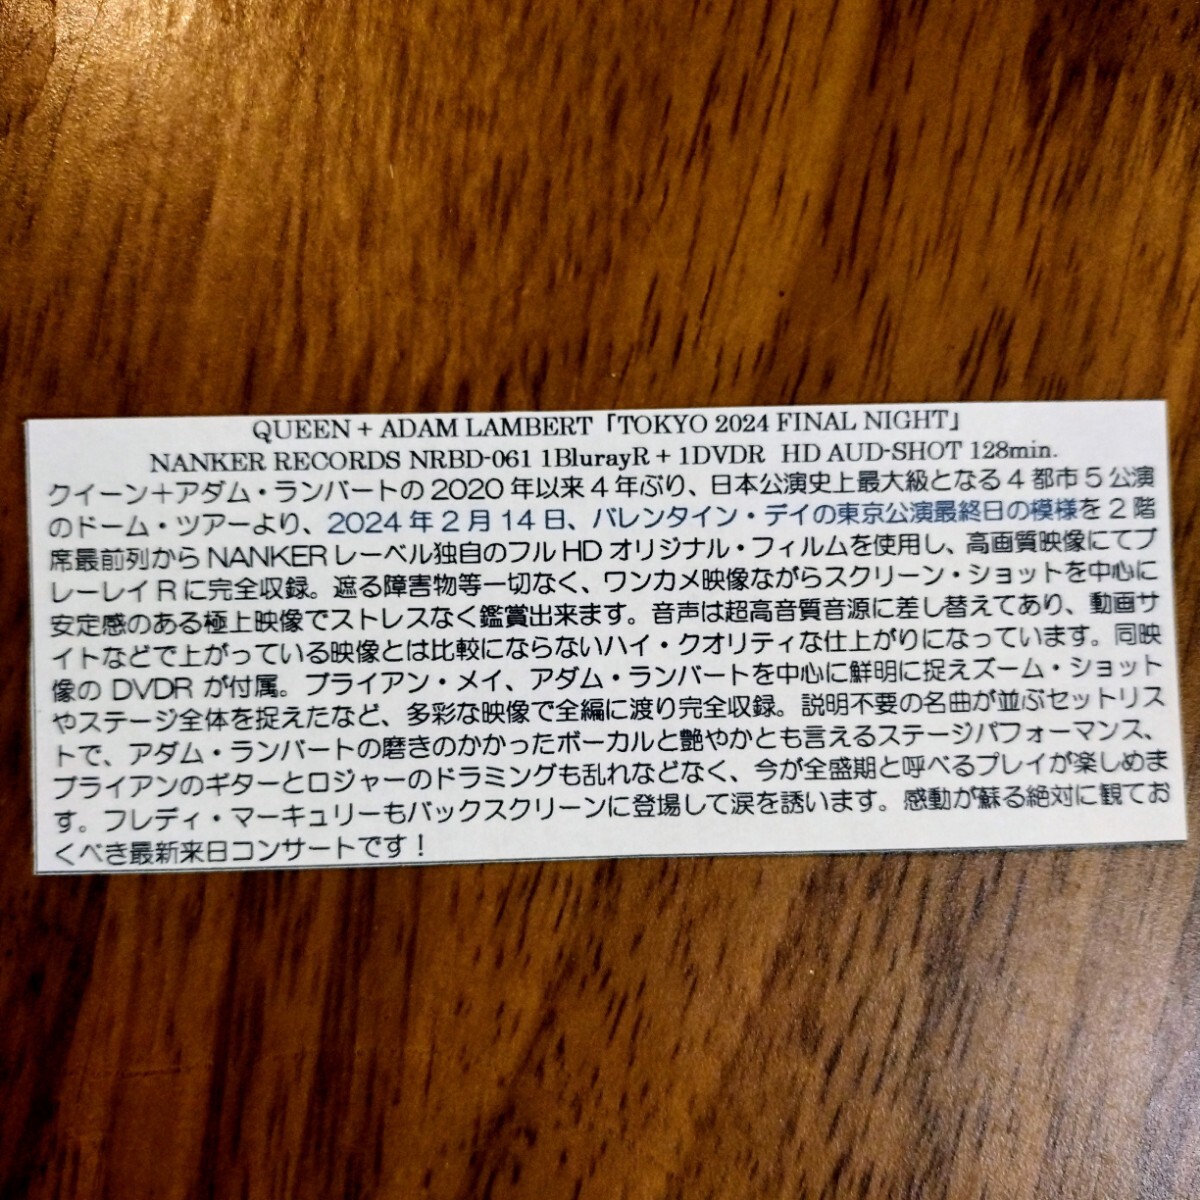 QUEEN + ADAM LAMBERT「TOKYO 2024 FINAL NIGHT」
NANKER RECORDS NRBD-061 1BlurayR + 1DVDR HD AUD-SHOT 128min.
クイーン+アダム・ランバートの2020年以来4年ぶり、日本公演史上最大級となる4都市5公演
のドーム・ツアーより、2024年2月14日、バレンタイン・デイの東京公演最終日の模様を2階
席最前列からNANKERレーベル独自のフルHDオリジナル・フィルムを使用し、高画質映像にてブ
ルーレイRに完全収録。遮る障害物等一切なく、ワンカメ映像ながらスクリーン・ショットを中心に
安定感のある極上映像でストレスなく鑑賞出来ます。音声は超高音質音源に差し替えてあり、動画サ
イトなどで上がっている映像とは比較にならないハイ・クオリティな仕上がりになっています。同映
像のDVDRが付属。ブライアン・メイ、アダム・ランバートを中心に鮮明に捉えズーム・ショット
やステージ全体を捉えたなど、多彩な映像で全編に渡り完全収録。説明不要の名曲が並ぶセットリス
トで、アダム・ランバートの磨きのかかったボーカルと艶やかとも言えるステージパフォーマンス、
ブライアンのギターとロジャーのドラミングも乱れなどなく、今が全盛期と呼べるプレイが楽しめま
す。フレディ・マーキュリーもバックスクリーンに登場して涙を誘います。感動が蘇る絶対に観てお
くべき最新来日コンサートです!